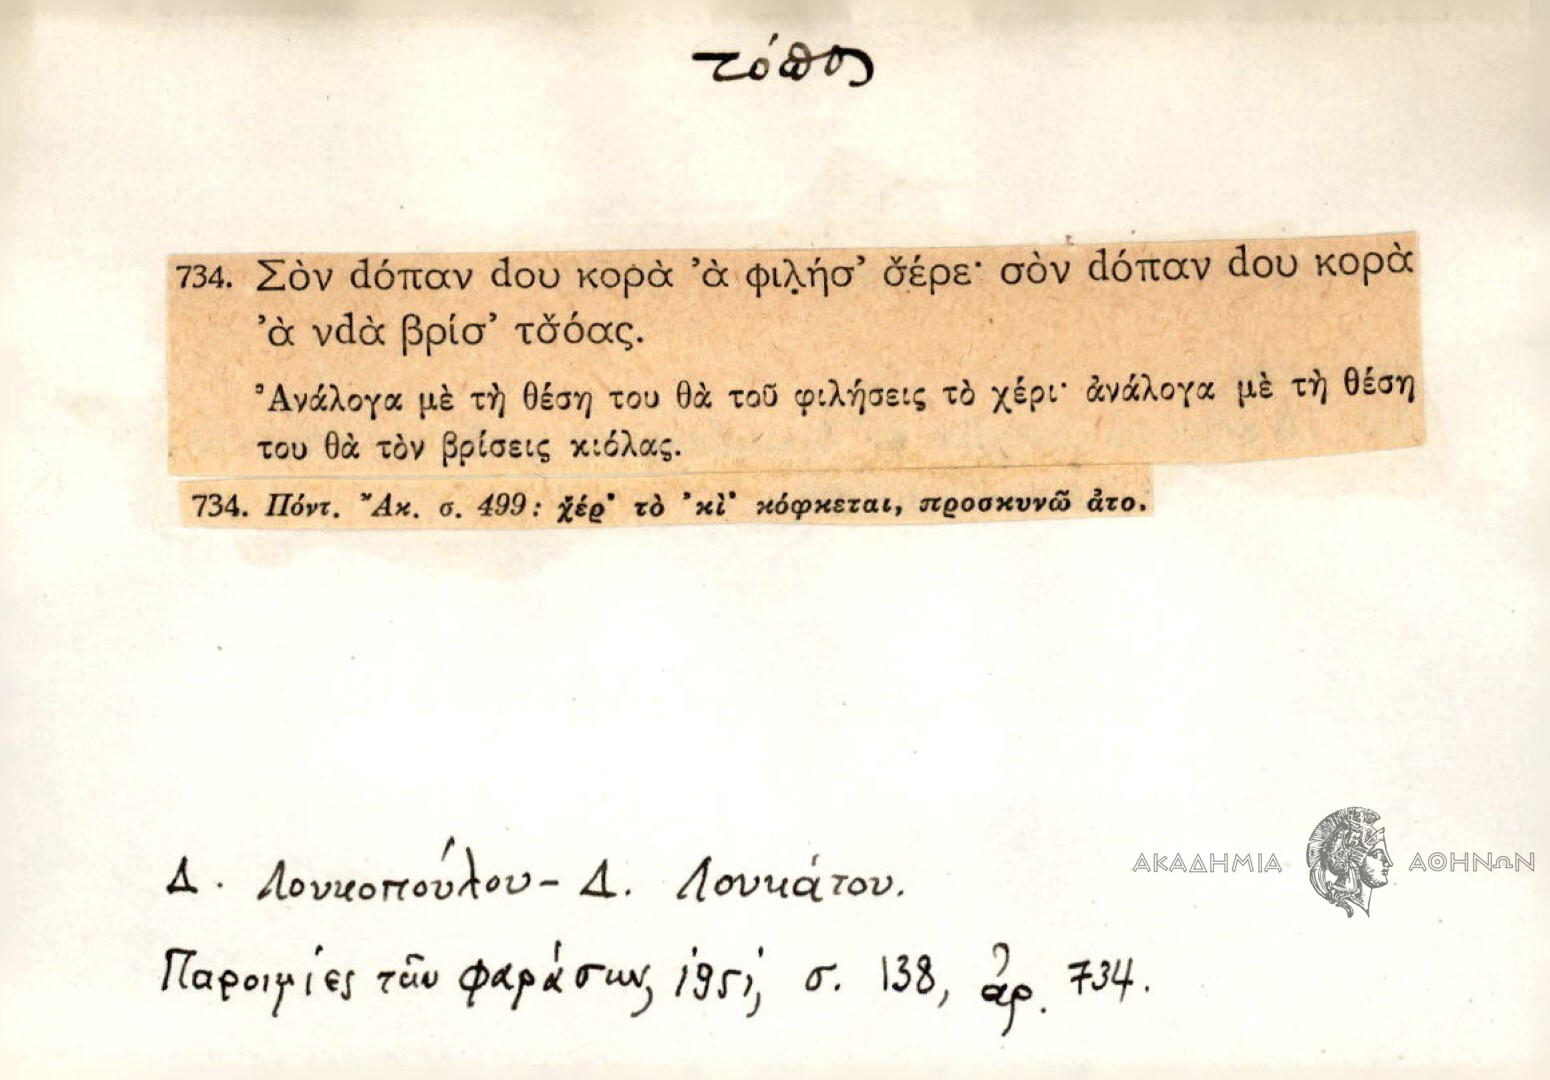 τόπος
734. Σὸν dόπαν dου κορὰ ’ὰ φιλ̣ήσ’ σ̌έρε· σὸν dόπαν dου κορὰ
’ὰ νdὰ βρίσ’ τσ̌όας.
Ἀνάλογα μὲ τὴ θέση του θὰ τοῦ φιλήσεις τὸ χέρι· ἀνάλογα μὲ τὴ θέση
του θὰ τὸν βρίσεις κιόλας.
734. Πόντ. Ἄκ. σ. 499: χ̌έρ’ τὸ ’κὶ’ κόφκεται, προσκυνῶ ἀτο.
Δ. Λουκοπούλου – Δ. Λουκάτου.
Παροιμίες τῶν Φαράσων, 1951, σ. 138, ἀρ. 734.
ΑΚΑΔΗΜΙΑ ΑΘΗΝΩΝ